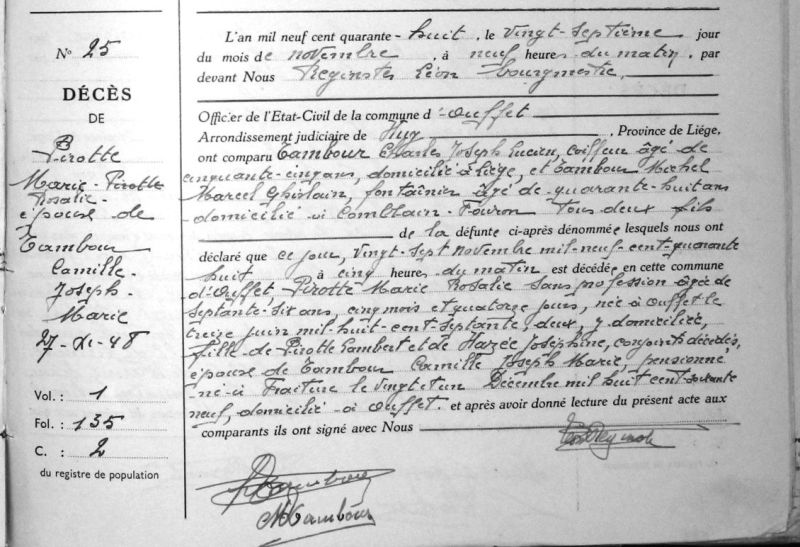 N° 25
DÉCÈS
DE
Pirotte
Marie-Pirotte
Rosalie-
épouse de
Tambour
Camille-
Joseph-
Marie
27-XI-48
Vol. : 1
Fol. : 135
C. : 2
du registre de population
L'an mil neuf cent quarante-huit, le vingt-septième jour
du mois de novembre, à neuf heures du matin, par
devant Nous Reginster Léon bourgmestre,
Officier de l'Etat-Civil de la commune d'Ouffet
Arrondissement judiciaire de Huy, Province de Liége,
ont comparu Tambour Charles Joseph Lucien, coiffeur âgé de
cinquante-cinq ans, domicilié à Liège, et Tambour Michel
Marcel Ghislain, fontainier âgé de quarante-huit ans
domicilié à Comblain-Tous deux fils
de la défunte ci-après dénommée lesquels nous ont
déclaré que ce jour, vingt-sept novembre mil-neuf-cent-quarante
huit à cinq heures du matin, est décédée en cette commune
d'Ouffet, Pirotte Marie Rosalie sans profession âgée de
septante-six ans, cinq mois et quatorze jours, née à Ouffet le
treize juin mil-huit-cent-septante-deux, y domiciliée,
fille de Pirotte Lambert et de Hazée Joséphine, conjoints décédés,
épouse de Tambour Camille Joseph Marie, pensionné
né à Fraiture le vingt et un Décembre mil huit cent soixante
neuf, domicilié à Ouffet. et après avoir donné lecture du présent acte aux
comparants ils ont signé avec Nous
Tambour
M Tambour